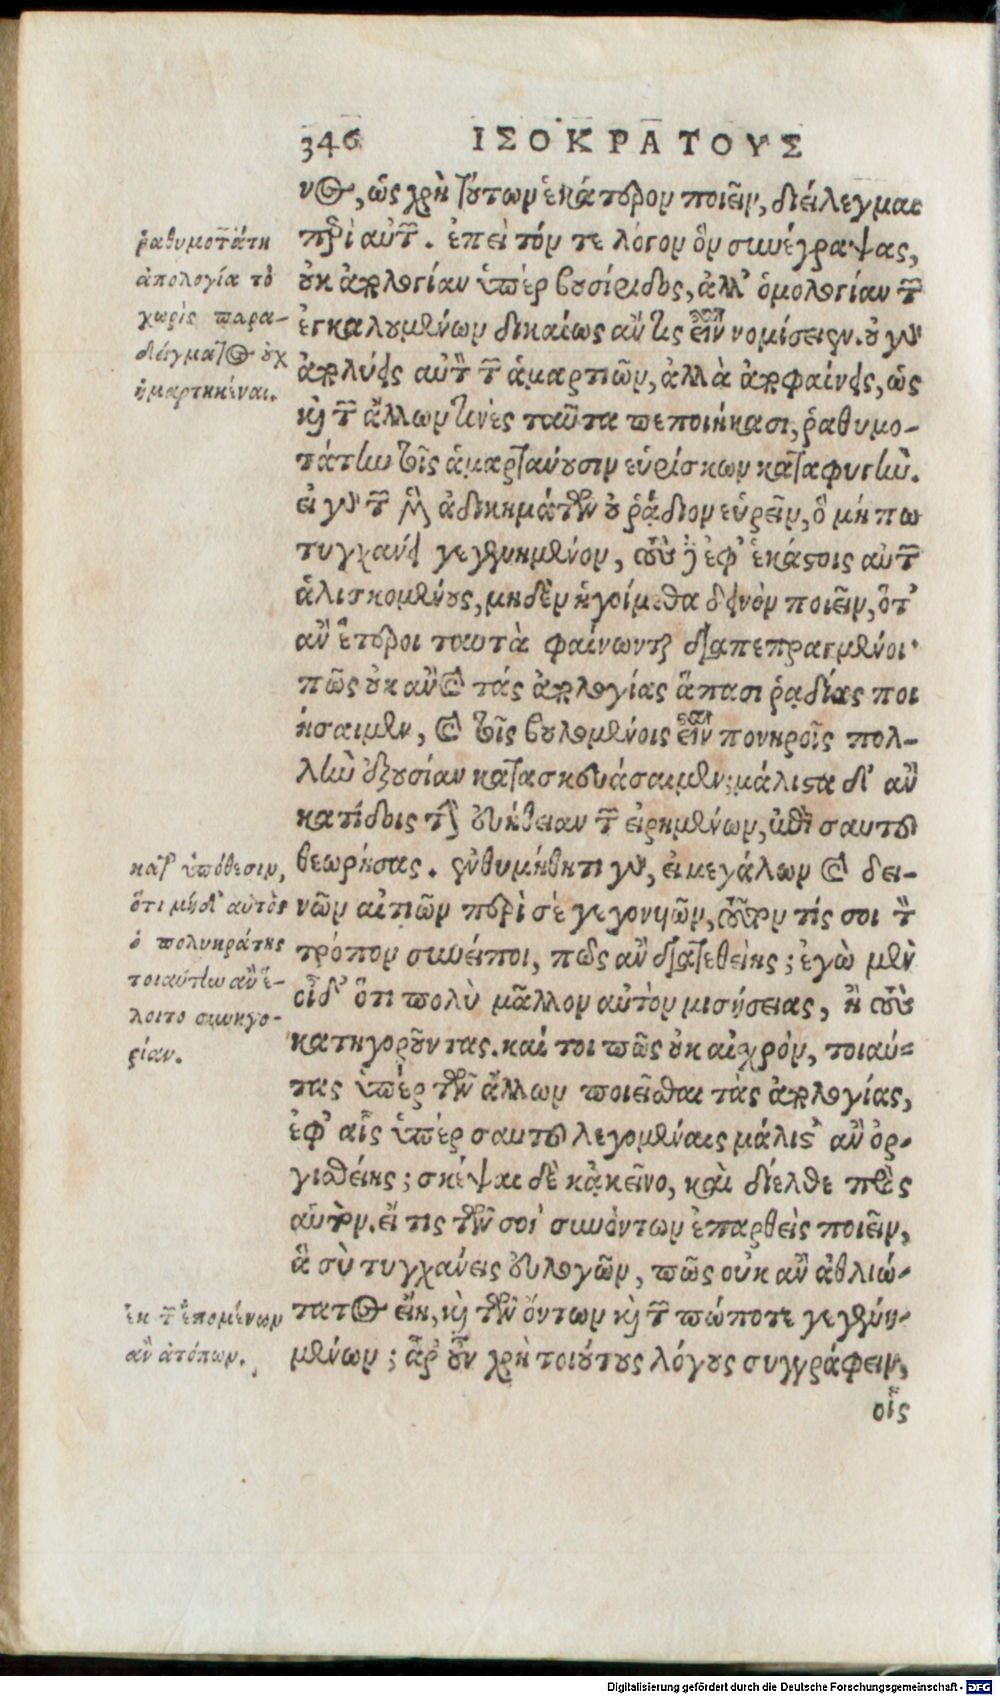 346 ΙΣΟΚΡΑΤΟΥΣ
νος, ὡς χρὴ τούτων ἑκάτερον ποιεῖν, διείλεγμαι
περὶ αὐτῶν. ἐπεὶ τόν τε λόγον ὃν συνέγραψας,
οὐκ ἀπολογίαν ὑπὲρ βουσίριδος, ἀλλ' ὁμολογίαν τῶν
ἐγκαλουμένων δικαίως ἄν τις εἶναι νομίσειεν. οὐ γὰρ
ἀπολύεις αὐτὸν τῶν ἁμαρτιῶν, ἀλλὰ ἀποφαίνεις, ὡς
καὶ τῶν ἄλλων τινὲς ταῦτα πεποιήκασι, ῥαθυμο-
τάτην τοῖς ἁμαρτάνουσιν εὑρίσκων καταφυγήν.
εἰ γὰρ τῶν μὲν ἀδικημάτων οὐ ῥᾴδιον εὑρεῖν, ὃ μή πω
τυγχάνει γεγενημένον, τοὺς δ' ἐφ' ἑκάστοις αὐτῶν
ἁλισκομένους, μηδὲν ἡγοίμεθα δεινὸν ποιεῖν, ὅτ'
ἂν ἕτεροι ταυτὰ φαίνωνται διαπεπραγμένοι·
πῶς οὐκ ἂν καὶ τάς ἀπολογίας ἅπασι ῥᾳδίας ποι
ήσαιμεν, καὶ τοῖς βουλομένοις εἶναι πονηροῖς πολ-
λὴν ἐξουσίαν κατασκευάσαιμεν; μάλιστα δ' ἂν
κατίδοις τὴν εὐήθειαν τῶν εἰρημένων, ἐπὶ σαυτοῦ
θεωρήσας. ἐνθυμήθητι γὰρ, εἰ μεγάλων καὶ δει-
νῶν αἰτιῶν περὶ σὲ γεγονυιῶν, τοῦτόν τίς σοι τὸν
τρόπον συνείποι, πῶς ἂν διατεθείης; ἐγὼ μὲν
οἶδ' ὅτι πολὺ μᾶλλον αὐτὸν μισήσειας, ἢ τοὺς
κατηγοροῦντας. καί τοι πῶς οὐκ αἰσχρόν, τοιαύ-
τας ὑπὲρ τῶν ἄλλων ποιεῖσθαι τὰς ἀπολογίας,
ἐφ' αἷς ὑπὲρ σαυτοῦ λεγομέναις μάλιστ' ἂν ὀρ-
γισθείης; σκέψαι δὲ κἀκεῖνο, καὶ δίελθε πρὸς
αὑτόν. εἴ τις τῶν σοί συνόντων ἐπαρθεὶς ποιεῖν,
ἃ σὺ τυγχάνεις εὐλογῶν, πῶς οὐκ ἂν ἀθλιώ-
τατος εἴη, καὶ τῶν ὄντων καὶ τῶν πώποτε γεγενη-
μένων; ἆρ' οὖν χρὴ τοιούτους λόγους συγγράφειν,
οἷς
ῥαθυμοτάτη
ἀπολογία τὸ
χωρὶς παρα-
δείγματος οὐχ
ἡμαρτηκέναι.
καθ' ὑπόθεσιν,
ὅτι μηδ' αὐτὸς
ὁ πολυκράτης
τοιαύτην ἂν ἕ-
λοιτο συνηγο-
ρίαν.
ἐκ τῶν ἑπομένων
ἂν ἀτόπων.
Digitalisierung gefördert durch die Deutsche Forschungsgemeinschaft - DFG